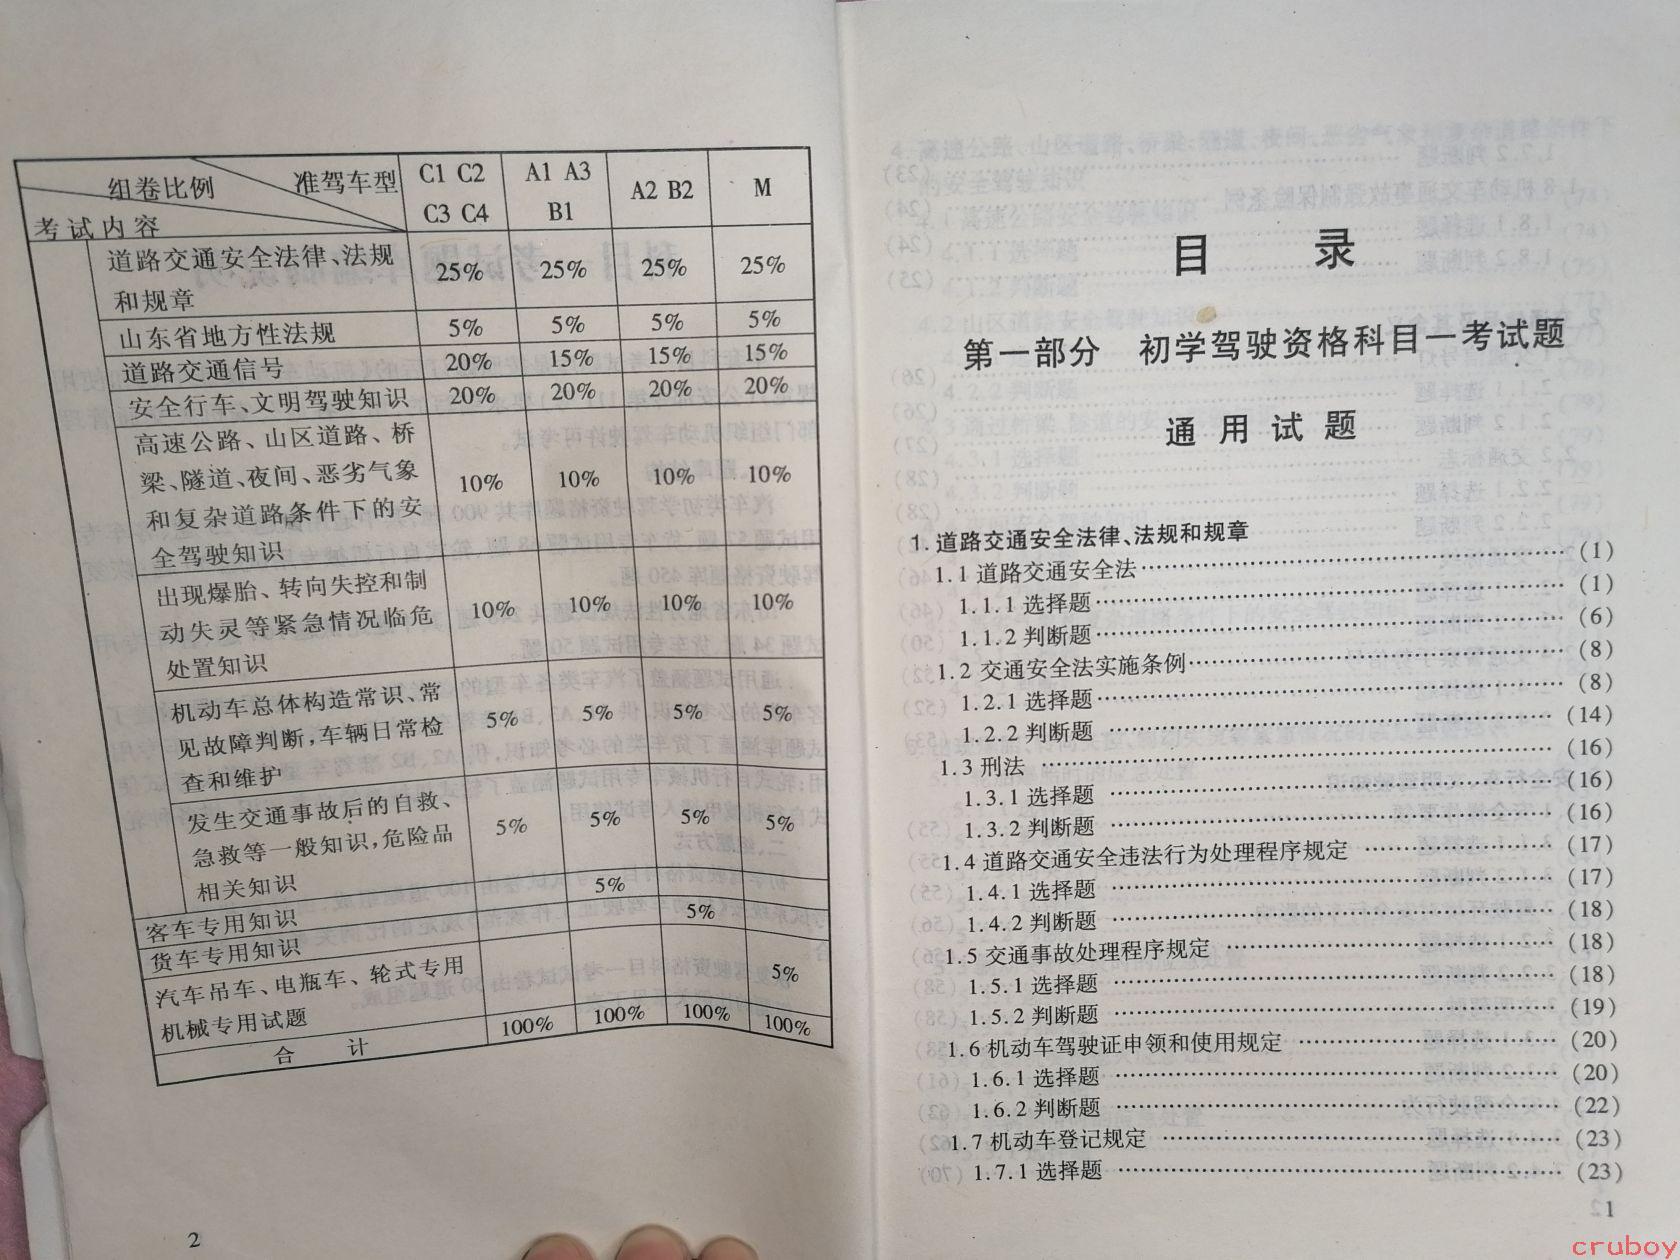 组卷比例 准驾车型 C1 C2 A1 A3 A2 B2 M
考试内容 C3 C4 B1
道路交通安全法律、法规
和规章 25% 25% 25% 25%
山东省地方性法规 5% 5% 5% 5%
道路交通信号 20% 15% 15% 15%
安全行车、文明驾驶知识 20% 20% 20% 20%
高速公路、山区道路、桥
梁、隧道、夜间、恶劣气象 10% 10% 10% 10%
和复杂道路条件下的安
全驾驶知识
出现爆胎、转向失控和制
动失灵等紧急情况临危 10% 10% 10% 10%
处置知识
机动车总体构造常识、常
见故障判断,车辆日常检 5% 5% 5% 5%
查和维护
发生交通事故后的自救、
急救等一般知识,危险品 5% 5% 5% 5%
相关知识
客车专用知识 5%
货车专用知识 5%
汽车吊车、电瓶车、轮式专用
机械专用试题 5%
合计 100% 100% 100% 100%
2
目录
第一部分 初学驾驶资格科目一考试题
通用试题
1. 道路交通安全法律、法规和规章
1.1 道路交通安全法 (1)
1.1.1 选择题 (1)
1.1.2 判断题 (6)
1.2 交通安全法实施条例 (8)
1.2.1 选择题 (8)
1.2.2 判断题 (14)
1.3 刑法 (16)
1.3.1 选择题 (16)
1.3.2 判断题 (16)
1.4 道路交通安全违法行为处理程序规定 (17)
1.4.1 选择题 (17)
1.4.2 判断题 (18)
1.5 交通事故处理程序规定 (18)
1.5.1 选择题 (18)
1.5.2 判断题 (19)
1.6 机动车驾驶证申领和使用规定 (20)
1.6.1 选择题 (20)
1.6.2 判断题 (22)
1.7 机动车登记规定 (23)
1.7.1 选择题 (23)
1
cruboy